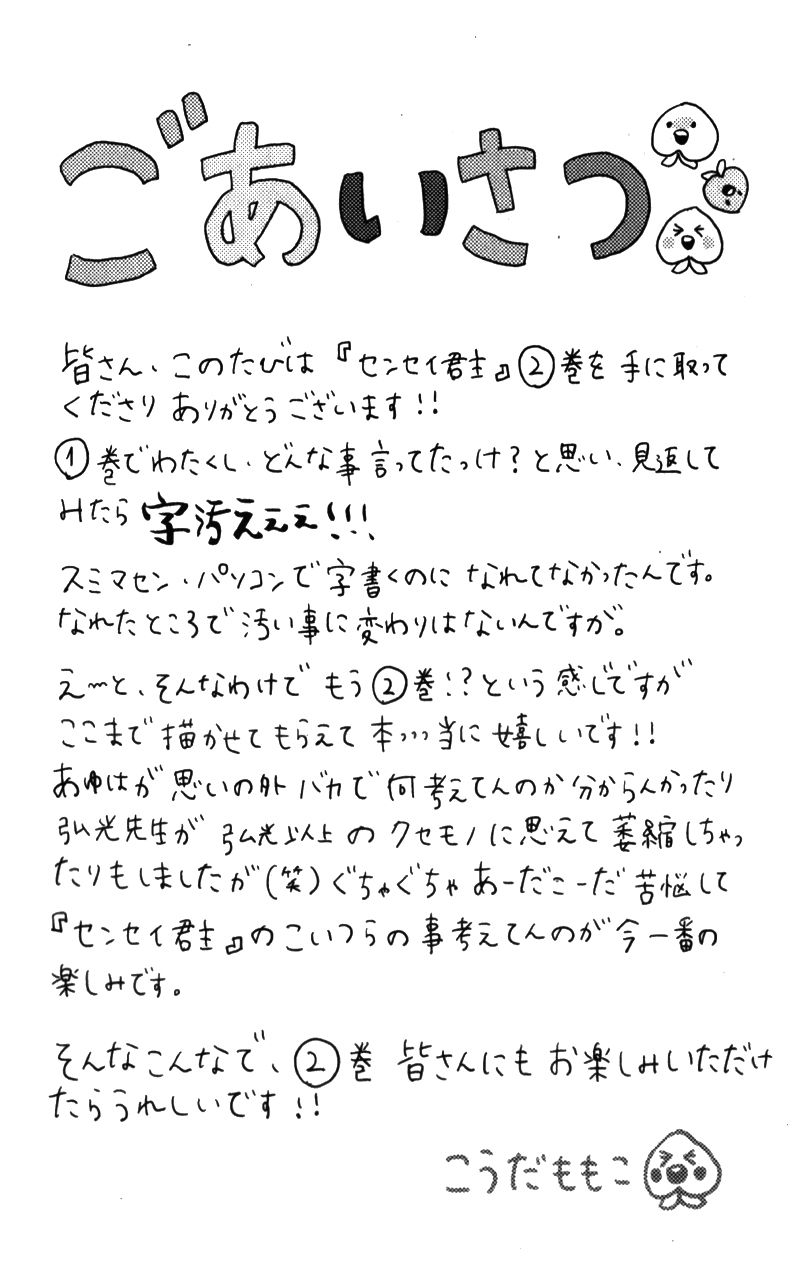 ごあいさつ
皆さん、このたびは『センセイ君主』②巻を手に取って
くださりありがとうございます!!
①巻でわたくし、どんな事言ってたっけ?と思い、見返して
みたら字汚えええ!!!
スミマセン、パソコンで字書くのになれてなかったんです。
なれたところで汚い事に変わりはないんですが。
え〜と、そんなわけでもう②巻!?という感じですが
ここまで描かせてもらえて本ッッッ当に嬉しいです!!
あゆはが思いの外バカで何考えてんのか分からんかったり
弘光先生が弘光以上のクセモノに思えて萎縮しちゃっ
たりもしましたが(笑)ぐちゃぐちゃあーだこーだ苦悩して
『センセイ君主』のこいつらの事考えてんのが今一番の
楽しみです。
そんなこんなで、②巻 皆さんにもお楽しみいただけ
たらうれしいです!!
こうだももこ